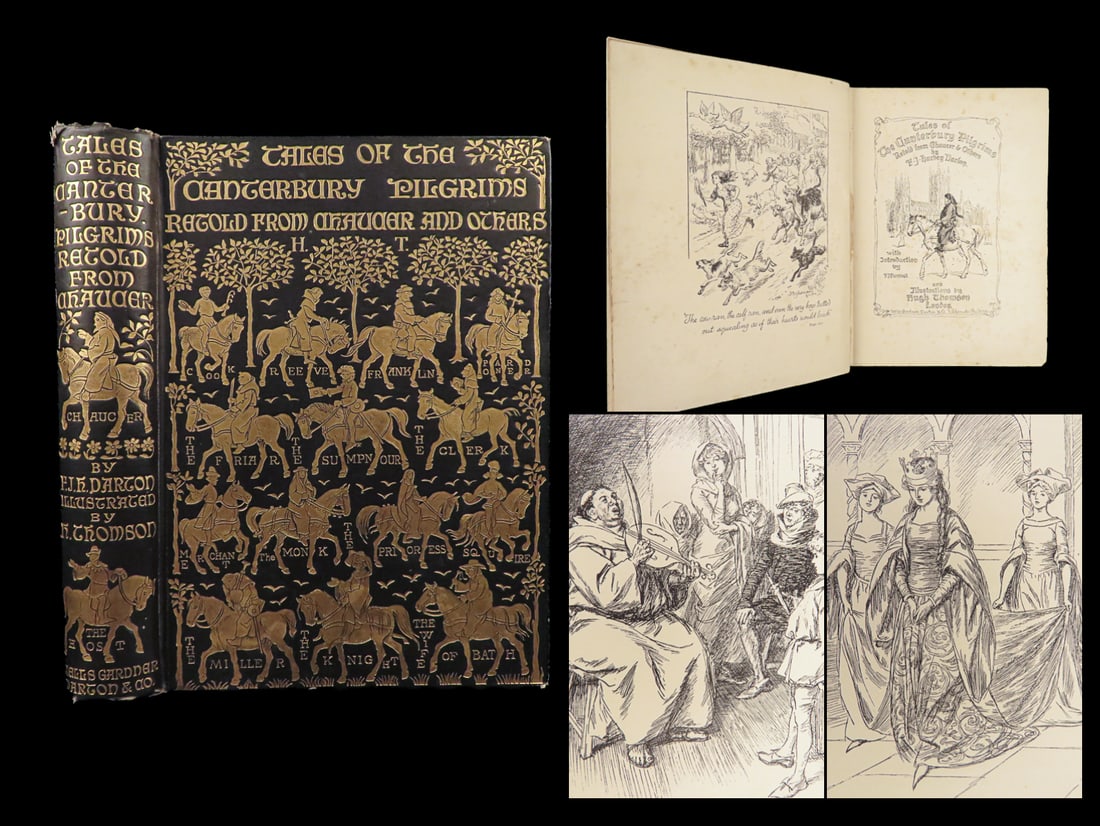 TALES
OF THE
CANTER
-BURY.
PILGRIMS
RETOLD
FROM
CHAUCER
CHAUCER
BY
F.J.H. DARTON
ILLUSTRATED
BY
H. THOMSON
THE
HOST
WELLS GARDNER
DARTON & CO.
TALES OF THE
CANTERBURY PILGRIMS
RETOLD FROM CHAUCER AND OTHERS
H. T.
COOK REEVE FRANKLIN PARDONER
THE FRIAR THE SUMPNOUR THE CLERK
MERCHANT The MONK THE PRIORESS SQUIRE
THE MILLER THE KNIGHT THE WIFE OF BATH
The cow ran, the calf ran, and even the very hogs trotted
out squealing as if their hearts would break
Tales of
The Canterbury Pilgrims
Retold from Chaucer & Others
by
F. J. Harvey Darton
with
Introduction
by
F. J. Furnivall
and
Illustrations by
Hugh Thomson
London